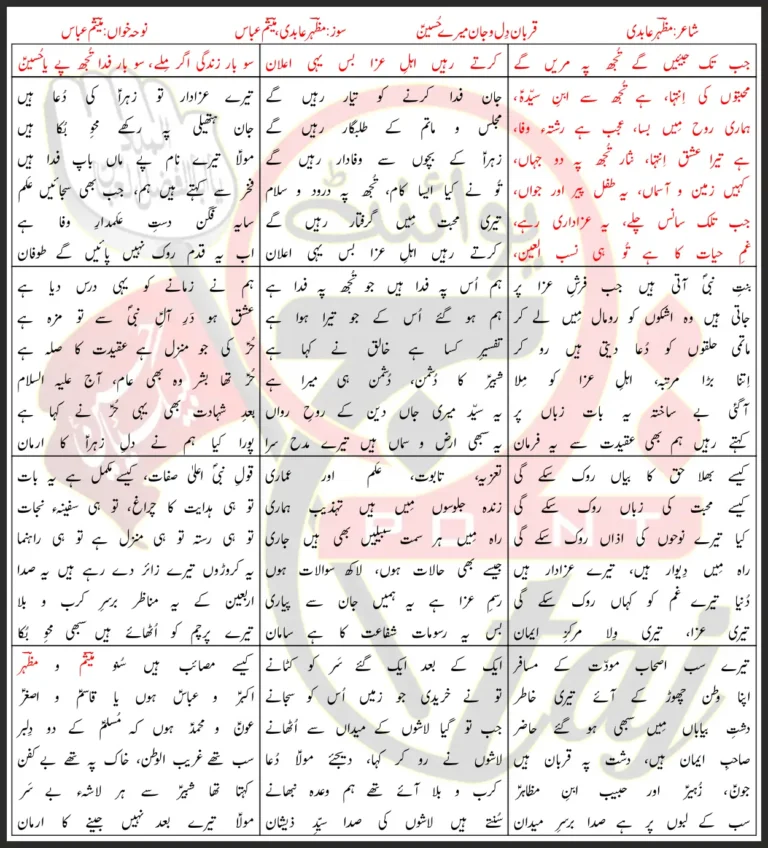 شاعر: مظہر عابدی
قربان دِل و جان میرے حُسینؑ
سوز: مظہر عابدی، میثم عباس
نوحہ خواں: میثم عباس
جب تک جیئیں گے تُجھ پہ مریں گے
کرتے رہیں اہلِ عزا بس یہی اعلان
سو بار زندگی اگر مِلے، سو بار فدا تُجھ پے یا حُسینؑ
محبتوں کی اِنتہا، ہے تُجھ سے ابنِ سیّدہؑ،
ہماری روح مِیں بسا، عجب ہے رشتہء وفا،
ہے تیرا عشق اِنتہا، نثار تُجھ پہ دو جہاں،
کہیں زمین و آسماں، یہ طفل پیر اور جواں،
جب تلک سانس چلے، یہ عزاداری رہے،
غمِ حیات کا ہے تُو ہی نسب العین،
جان فدا کرنے کو تیار رہیں گے
مجلس و ماتم کے طلبگار رہیں گے
زہراؑ کے بچوں سے وفادار رہیں گے
تُو نے کیا ایسا کام، تُجھ پہ درود و سلام
تیری محبت مِیں گرفتار رہیں گے
کرتے رہیں اہلِ عزا بس یہی اعلان
تیرے عزادار تو زہراؑ کی دُعا ہیں
جان ہتھیلی پہ رکھے محوِ بُکا ہیں
مولاؑ تیرے نام پے ماں باپ فدا ہیں
فخر سے کہتے ہیں ہم، جب بھی سجائیں عَلم
سایہ فگن دستِ علمدارِ وفا ہے
اب یہ قدم روک نہیں پائیں گے طوفان
بنتِ نبیؐ آتی ہیں جب فرشِ عزا پر
جاتی ہیں وہ اشکوں کو رومال مِیں لے کر
ماتمی حلقوں کو دُعا دیتی ہیں رو کر
اِتنا بڑا مرتبہ، اہلِ عزا کو مِلا
آگئی بے ساختہ یہ بات زباں پر
کہتے رہیں ہم بھی عقیدت سے یہ فرمان
ہم اُس پہ فدا ہیں جو تُجھ پہ فدا ہے
ہم ہو گئے اُس کے جو تیرا ہوا ہے
تفسیرِ کسا ہے خالق نے کہا ہے
شبیرؑ کا دُشمن، دُشمن ہی میرا ہے
یہ سیّد میری جاں دین کے روحِ رواں
یہ سبھی ارض و سماں ہیں تیرے مدح سرا
ہم نے زمانے کو یہی درس دیا ہے
عشق ہو درِ آلِ نبیؐ سے تو مزہ ہے
حُرؑ کی جو منزل ہے عقیدت کا صلہ ہے
حُرؑ تھا بشر وہ بھی عام، آج علیہ السلام
بعدِ شہادت بھی یہی حُرؑ نے کہا ہے
پورا کیا ہم نے دلِ زہراؑ کا ارمان
کیسے بھلا حق کا بیاں روک سکے گی
کیسے محبت کی زباں روک سکے گی
کیا تیرے نوحوں کی اذاں روک سکے گی
راہ مِیں دِیوار ہیں، تیرے عزادار ہیں
دُنیا تیرے غم کو کہاں روک سکے گی
تیری عزا، تیری وِلا مرکزِ ایمان
تعزیہ، تابوت، عَلم اور عماری
زندہ جلوسوں مِیں ہیں تہذیب ہماری
راہ مِیں ہر سمت سبیلیں بھی ہیں جاری
جیسے بھی حالات ہوں، لاکھ سوالات ہوں
رسمِ عزا ہے یہ ہمیں جان سے پیاری
بس یہ رسومات شفاعت کا ہے سامان
قولِ نبیؐ اعلیٰ صفات، کیسے مکمل ہے یہ بات
تو ہی ہدایت کا چراغ، تو ہی سفینہء نجات
تو ہی رستہ تو ہی منزل ہے تو ہی راہنما
یہ کروڑوں تیرے زائر دے رہے ہیں یہ صدا
اربعین کے یہ مناظر برسرِ کرب و بلا
تیرے پرچم کو اُٹھائے ہیں سبھی محوِ بُکا
تیرے سب اصحاب مودّت کے مسافر
اپنا وطن چھوڑ کے آئے تیری خاطر
دشتِ بیاباں مِیں سبھی ہو گئے حاضر
صاحبِ ایمان ہیں، دشت پہ قربان ہیں
جونؑ، زُہیرؑ اور حبیب ابنِ مظاہرؑ
سب کے لبوں پر ہے صدا برسرِ میدان
ایک کے بعد ایک گئے سَر کو کٹانے
تو نے خریدی جو زمیں اُس کو سجانے
جب تو گیا لاشوں کے میداں سے اُٹھانے
لاشوں نے رو کر کہا، دیجئے مولاؑ دُعا
کرب و بلا آئے تھے ہم وعدہ نبھانے
سُنتے ہیں لاشوں کی صدا سیّدِ ذیشان
کیسے مصائب ہیں سُنو میثم و مظہر
اکبرؑ و عباسؑ ہوں یا قاسمؑ و اصغرؑ
عونؑ و محمدؑ ہوں کہ مُسلمؑ کے دو دِلبر
سب تھے غریب الوطن، خاک پہ تھے بے کفن
کہتا تھا شبیرؑ سے ہر لاشہء بے سَر
مولاؑ تیرے بعد نہیں جینے کا ارمان
POINT
taj